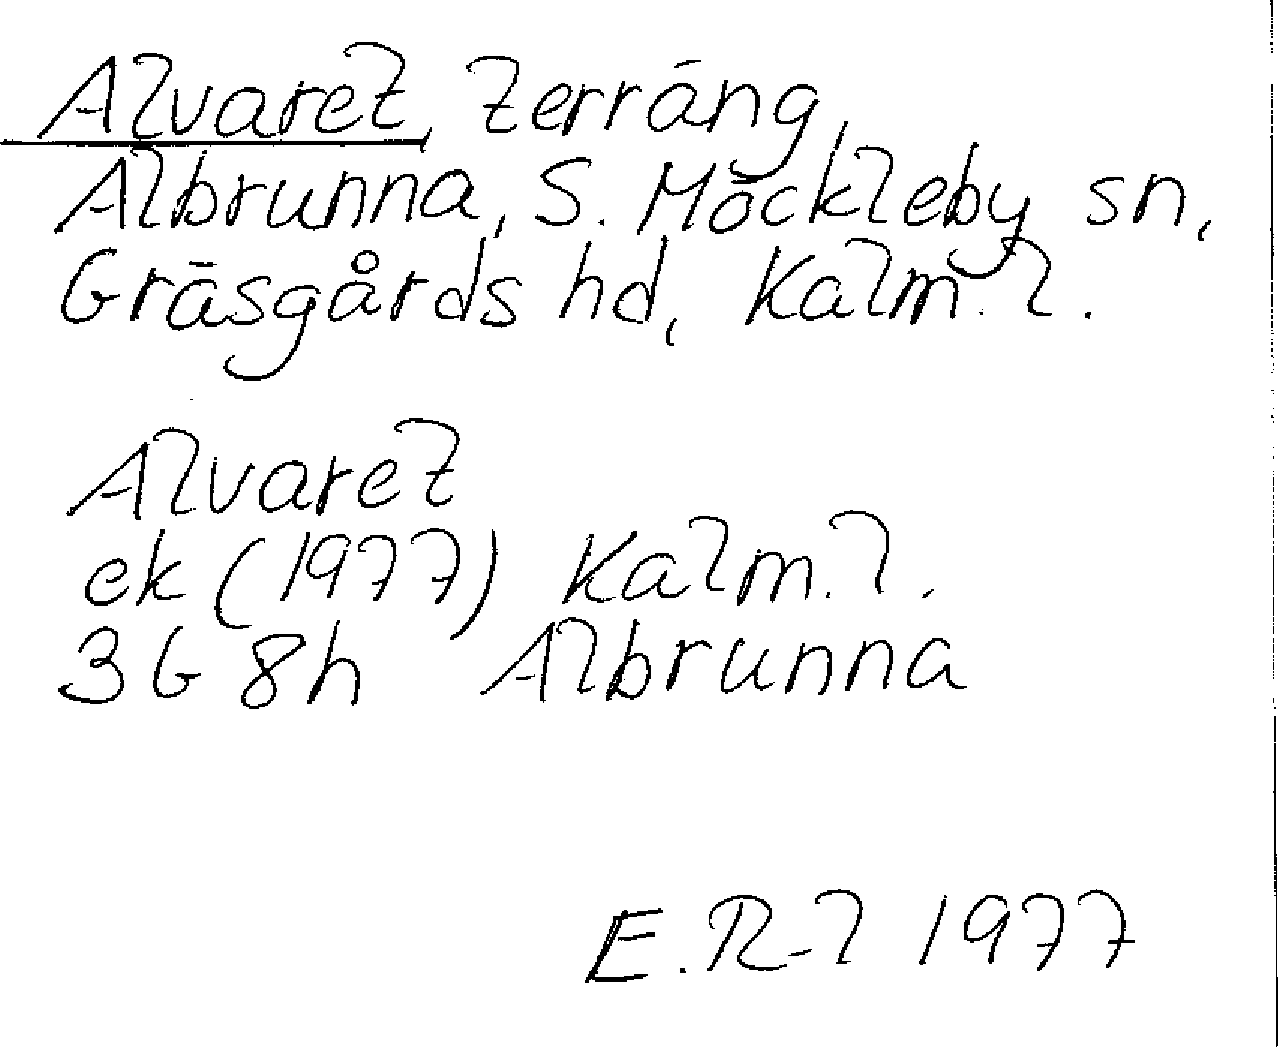 Alvaret, terräng,
Albrunna, S. Möckleby sn,
Gräsgårds hd, Kalm. l.
Alvaret
ek (1977) Kalm. l.
3G 8h Albrunna
E.R-l 1977